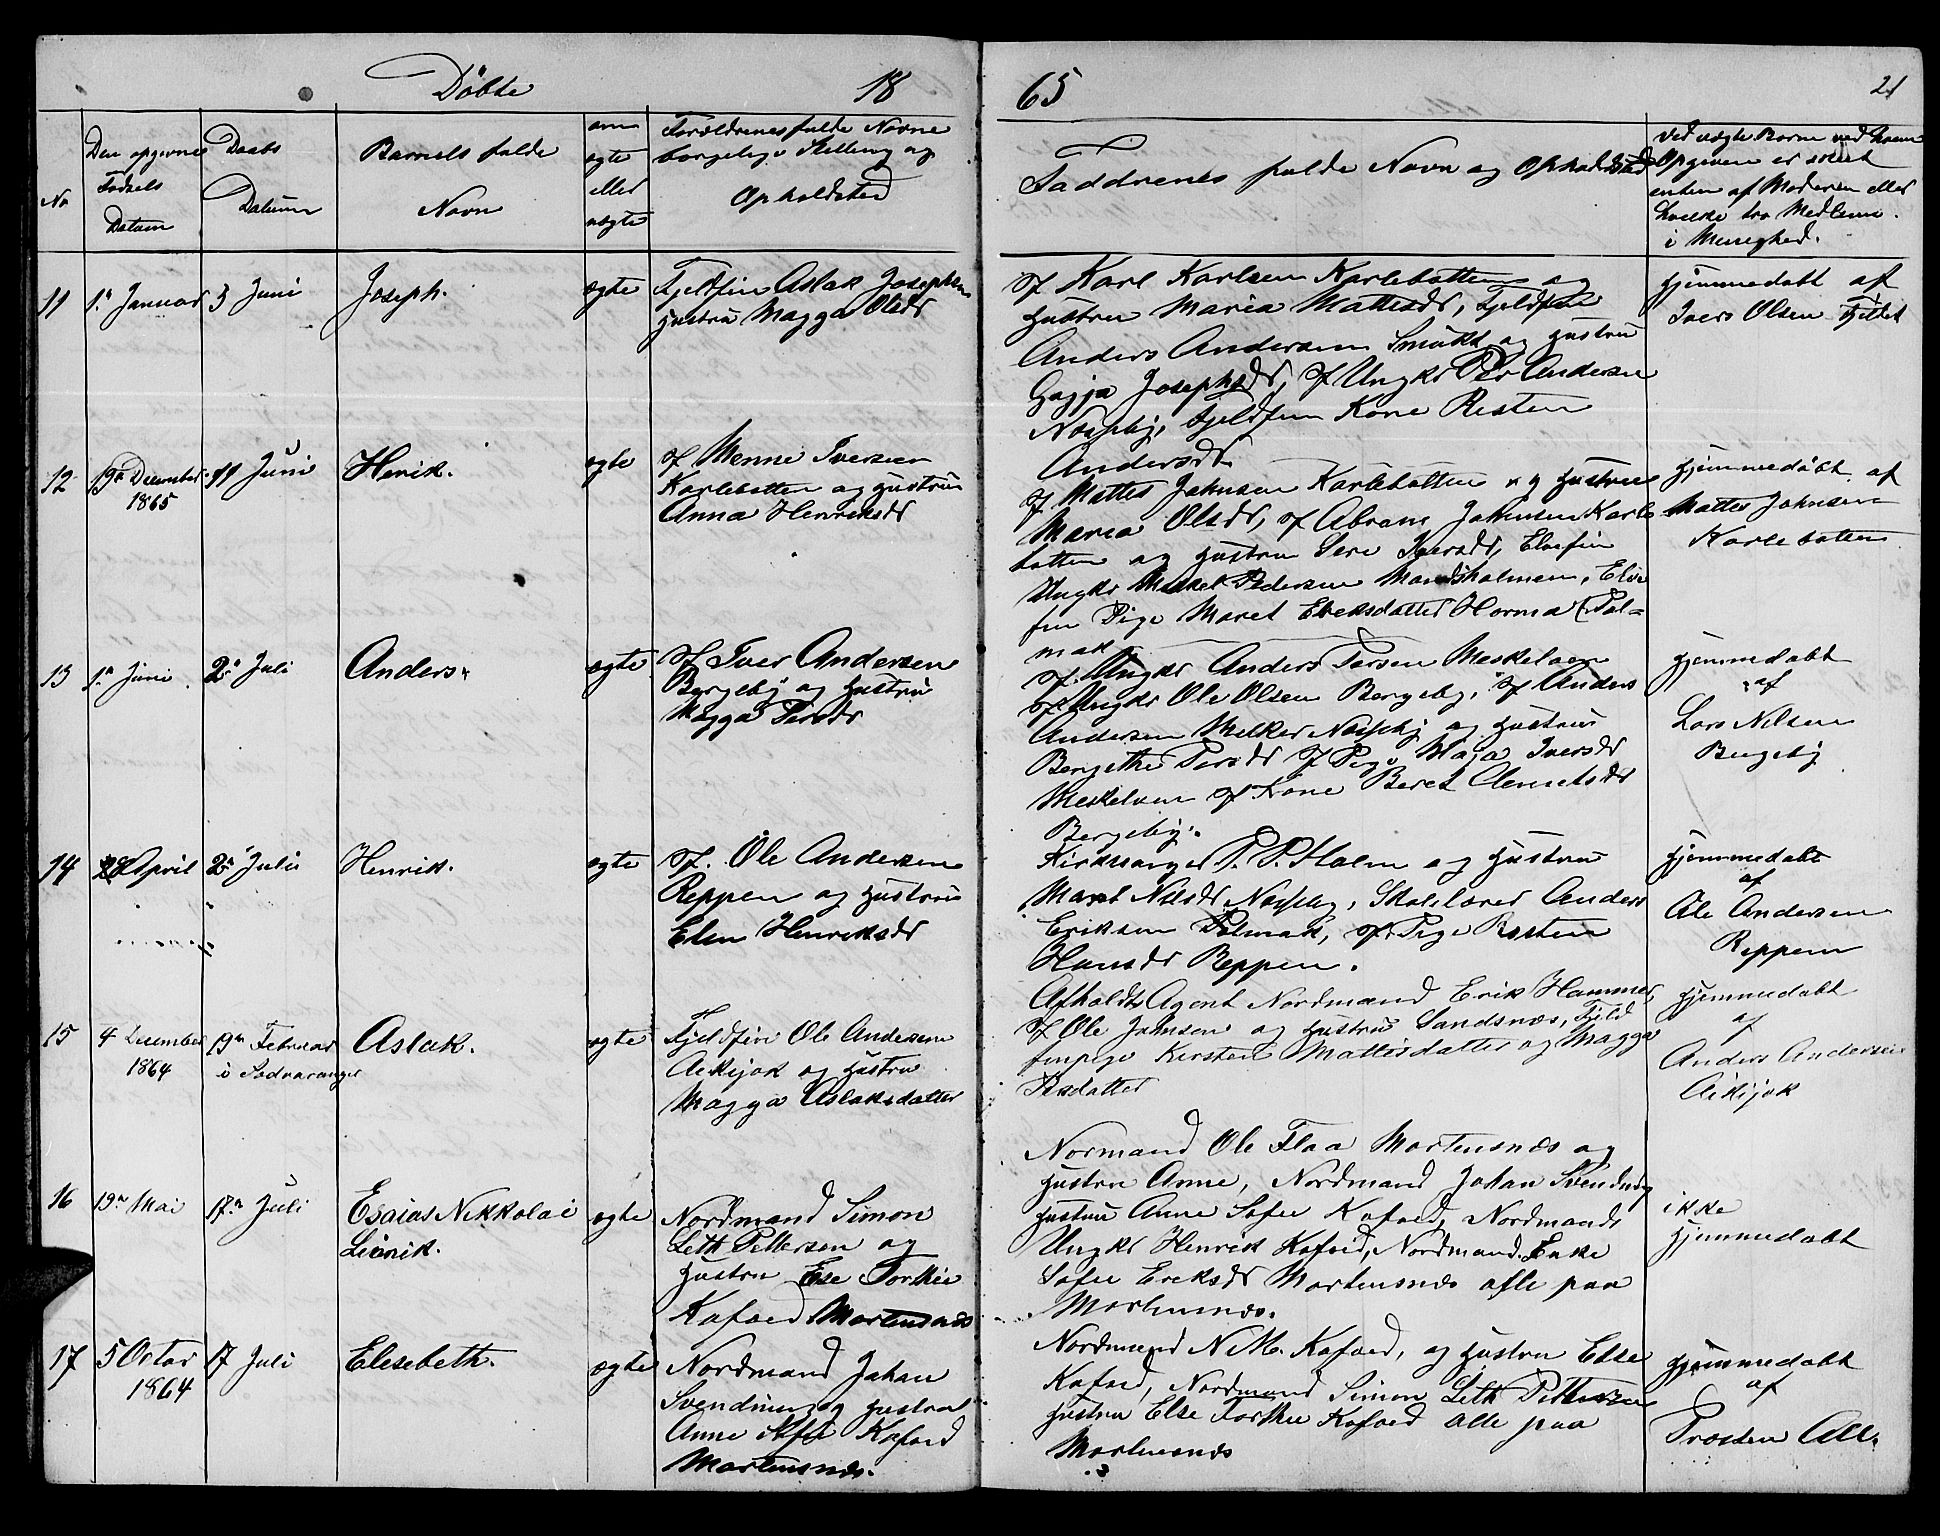 Döbte 18 65 21
No
Den opgevne Fødsels Datum
Daabs Datum
Barnets fulde Navn
om ægte eller uægte
Forældrenes fulde Navne borgelige Stilling og Opholdsted
Faddrenes fulde Navn og Opholdsted
ved uægte Børn ved hvem
Opgiven er skeet
enten af Moderen eller
hvilke tro Medlemi
i Menighed.
11 1a Januar 3 Juni Joseph. ægte
Fjeldfin Aslak Josephsen
Hustru Magga Olsdr
Sf Karl Karlsen Karlebotten og
Hustru Maria Mattisdr, Fjeldfin
Anders Andersen Smukk og Hustru
Gagja Josephsdr, Sf Ungkr Per Andersen
Næsseby, Fjeldfin Kone Risten
Andersdr
gjemmedøbt af
Ivers Olsen Fjeldet
12 19a December 1865 11 Juni Henik. ægte
Sf Menne Iversen
Karlebotten og Hustru
Anna Henriksdr
Sf Mattis Johnsen Karlebotten og Hustru
Maria Olsdr, Sf Abram Johnsen Karle
botten og Hustru Sere Iversdr, Elvefin
Ungkr Mikkel Pedersen Mandsholmen, Elve
fin Pige Maret Ereksdatter Horma (Pol=
mak
gjemmedöbt af
Mattis Johnsen
Karlebotten
13 1a Juni 2a Juli Anders. ægte
Sf Iver Andersen
Bergeby og Hustru
Magga Persdr
Sf. Ungkr Anders Persen Meskelven
Sf. Ungkr Ole Olsen Bergeby, Sf Anders
Andersen Melker Næsseby og Hustru
Bergethe Persdr Sf Pige Maja Iversdr
Meskelven Sf Kone Beret Clemetsdr
Bergeby.
gjemmedøbt
af
Lars Nilsen
Bergeby
14 28 April 2a Juli Henrik. ægte
Sf. Ole Andersen
Reppen og Hustru
Elen Henriksdr
Kirkesanger P. P. Holm og Hustru
Maret Nilsdr Næsseby, Skolelærer Anders
Eriksen Polmak, Sf. Pige Risten
Hansdr Reppen.
gjemmedøbt
af
Ole Andersen
Reppen
15 4 December 1864 19de Februar i Sydvaranger Aslak. ægte
Fjeldfin Ole Andersen
Aekijok og Hustru
Magga Aslaksdatter
Afholds Agent Nordmand Erik Hammer,
Sf Ole Johnsen og Hustru Sandsnæs, Fjeld
finpige Kirsten Mattisdatter og Magga
Persdatter
gjemmedøbt
af
Anders Andersen
Aekijok
16 19a Mai 17a Juli Esaias Nikkolai ægte
Nordmand Simon
Leth Pettersen og
Hustru Else Dorthie
Kofoed Mortensnæs
Normand Ole Flaa Mortensnæs og
Hustru Anne, Nordmand Johan Svending
Hustru Anne Sofie Kofoed, Nordmands
Ungkr Henrik Kofoed, Nordmand. Enke
Sofie Ereksdr Mortensnæs alle paa
Mortensnæs.
ikke
gjemmedøbt
17 5 Octor 1864 17 Juli Elesebeth. ægte
Nordmand Johan
Svending Hustru
Anne Sofie Kofoed
Mortensnæs.
Nordmand N. M. Kofoed, og Hustru Else
Kofoed, Nordmand Simon Leth Pettersen
Hustru Else Dorthie Kofoed alle paa
Mortensnæs
gjemmedøbt
af
Prosten All.